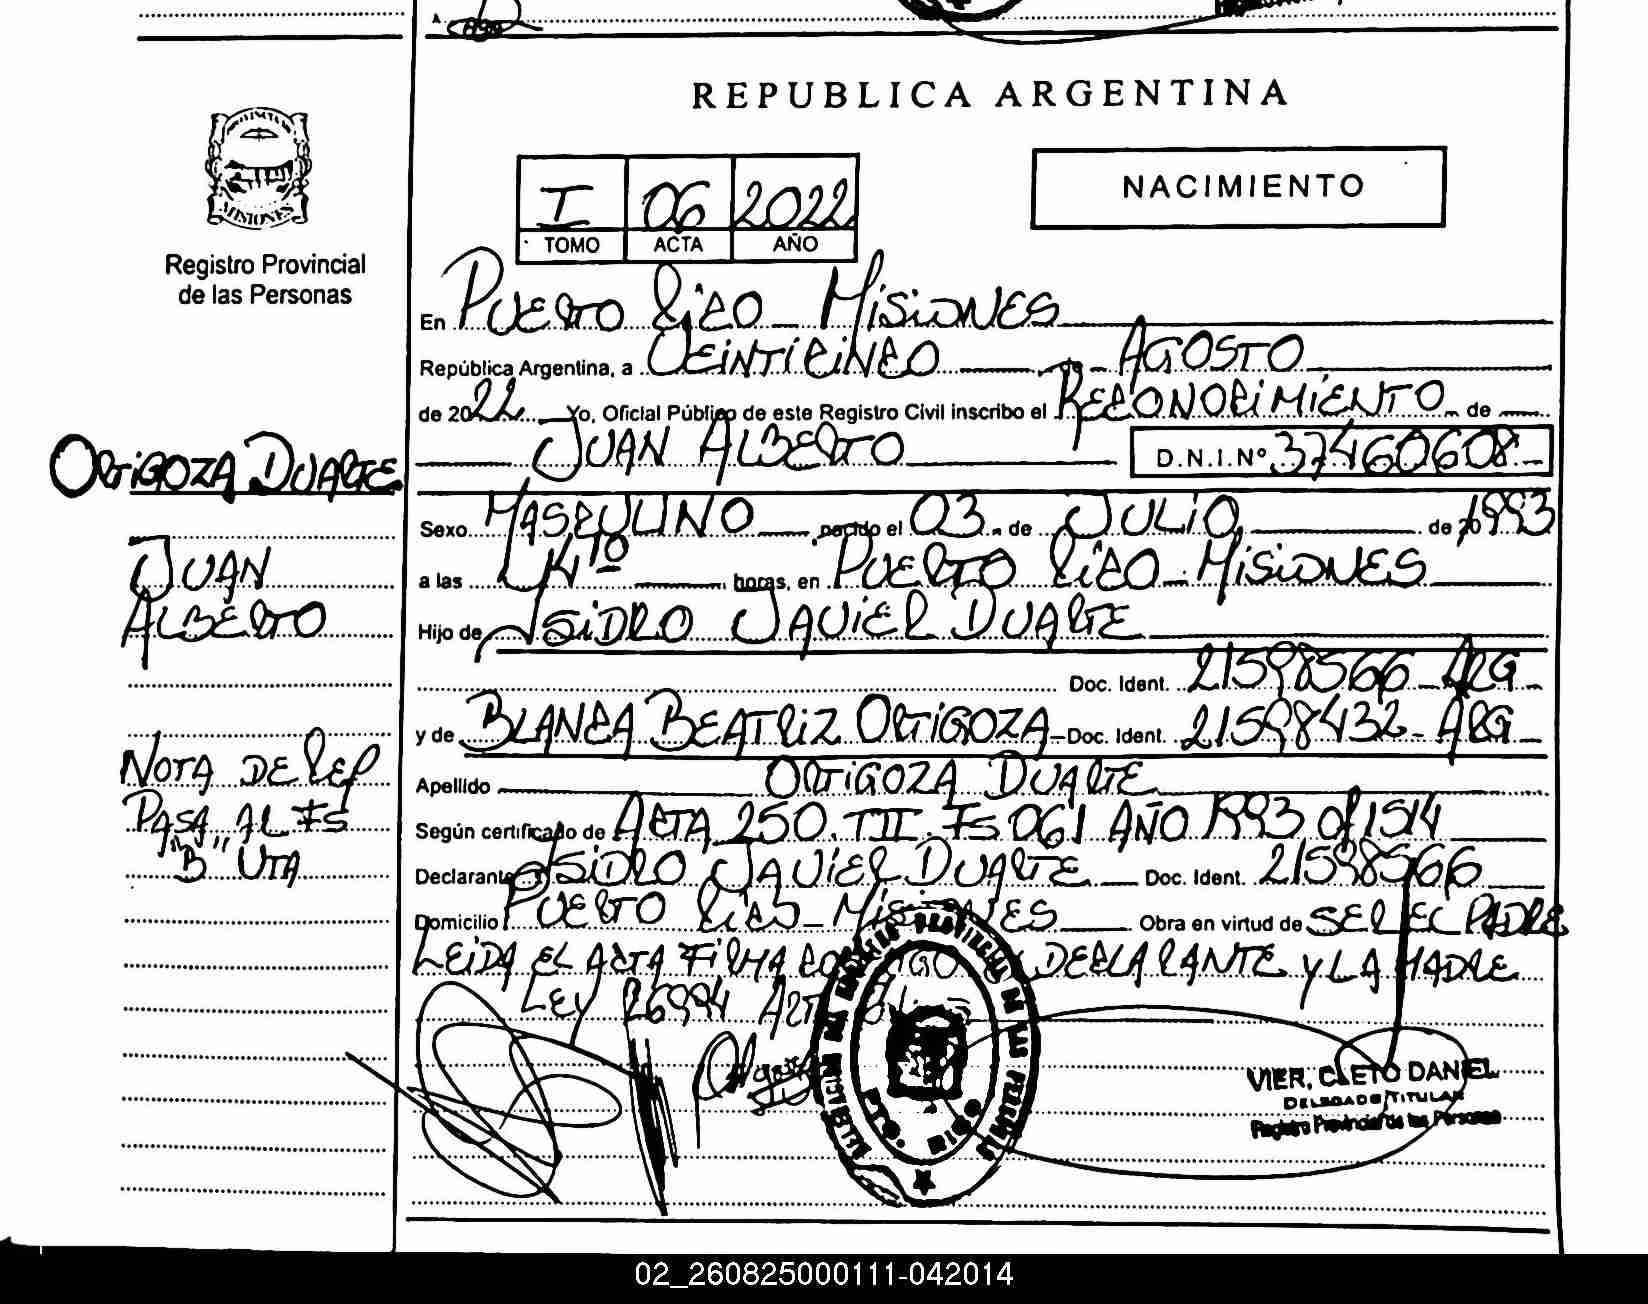 REPUBLICA ARGENTINA
PROVINCIA DE
MISIONES
Registro Provincial
de las Personas
I 06 2022
TOMO ACTA AÑO
NACIMIENTO
En PUERTO RICO - MISIONES
República Argentina, a VEINTICINCO de AGOSTO
de 2022 Yo, Oficial Público de este Registro Civil inscribo el RECONOCIMIENTO de
JUAN ALBERTO D.N.I.Nº 37460608
ORTIGOZA DUARTE
JUAN
ALBERTO
Sexo MASCULINO nacido el 03 de JULIO de 20 1993
a las horas, en PUERTO RICO - MISIONES
Hijo de ISIDRO JAVIER DUARTE
Doc. Ident. 21598566 - ARG
y de BLANCA BEATRIZ ORTIGOZA - Doc. Ident. 21598432 - ARG
Apellido ORTIGOZA DUARTE
Según certificado de ACTA 250. TII. Fs 061 AÑO 1993 of 1514
Declarante ISIDRO JAVIER DUARTE Doc. Ident. 21598566
Domicilio PUERTO RICO - MISIONES Obra en virtud de SER EL PADRE
LEIDA EL ACTA FIRMA DECLARANTE Y LA MADRE
LEY 26994 ART
NOTA DE REF
PASA AL Fs
"B" UTA
VIER, CLETO DANIEL
DELEGADO TITULAR
Registro Provincial de las Personas
02_260825000111-042014